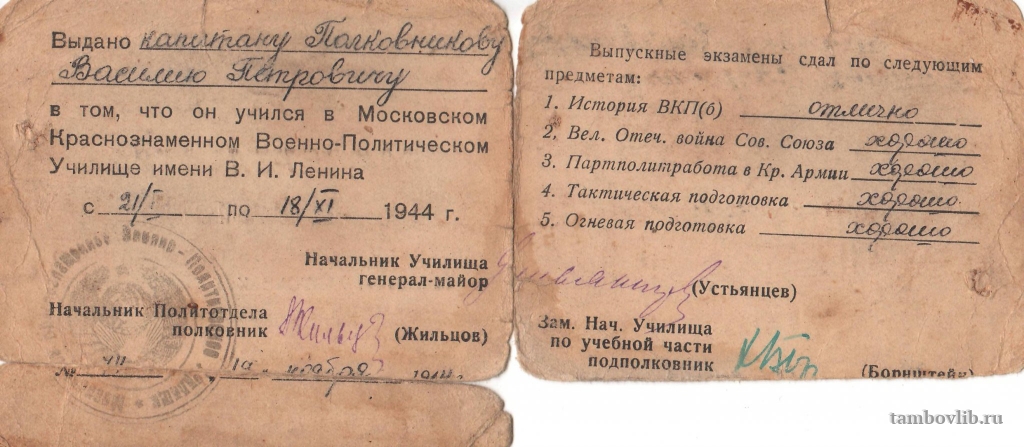 Выдано капитану Полковникову
Василию Петровичу
в том, что он учился в Московском
Краснознаменном Военно-Политическом
Училище имени В. И. Ленина
с 21/I по 18/XI 1944 г.
Начальник Училища
генерал-майор
(Устьянцев)
Начальник Политотдела
полковник
Жильцов
(Жильцов)
ноября 194
Выпускные экзамены сдал по следующим
предметам:
1. История ВКП(б) отлично
2. Вел. Отеч. война Сов. Союза хорошо
3. Партполитработа в Кр. Армии хорошо
4. Тактическая подготовка хорошо
5. Огневая подготовка хорошо
Зам. Нач. Училища
по учебной части
подполковник
(Борнштейн)
tambovlib.ru